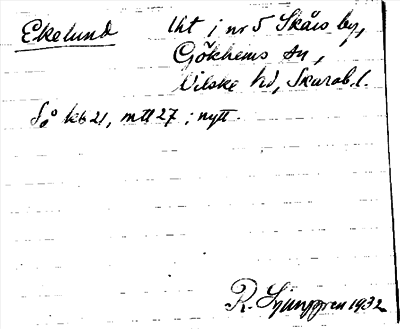 Ekelund Uht i nr 5 Skårs by,
Gökhems sn,
Vilske hd, Skarab. l.
Så kb 21, mtl 27; nytt.
R. Ljunggren 1932